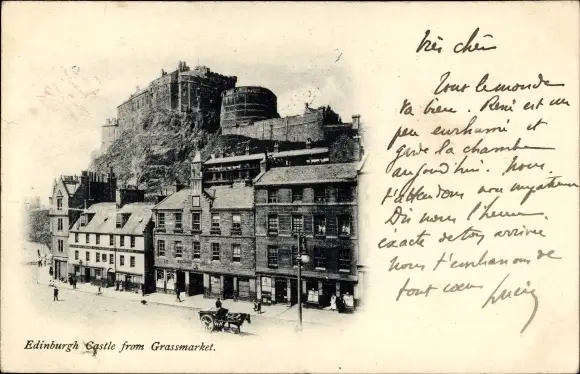 Très chér
Tout le monde
va bien. René est un
peu enrhumé et
garde la chambre
aujourd'hui. Nous
t'attendons non
Dis nous l'heure
exacte de ton arrivée
Nous t'embrassons de
tout cœur Lucie
Edinburgh Castle from Grassmarket.